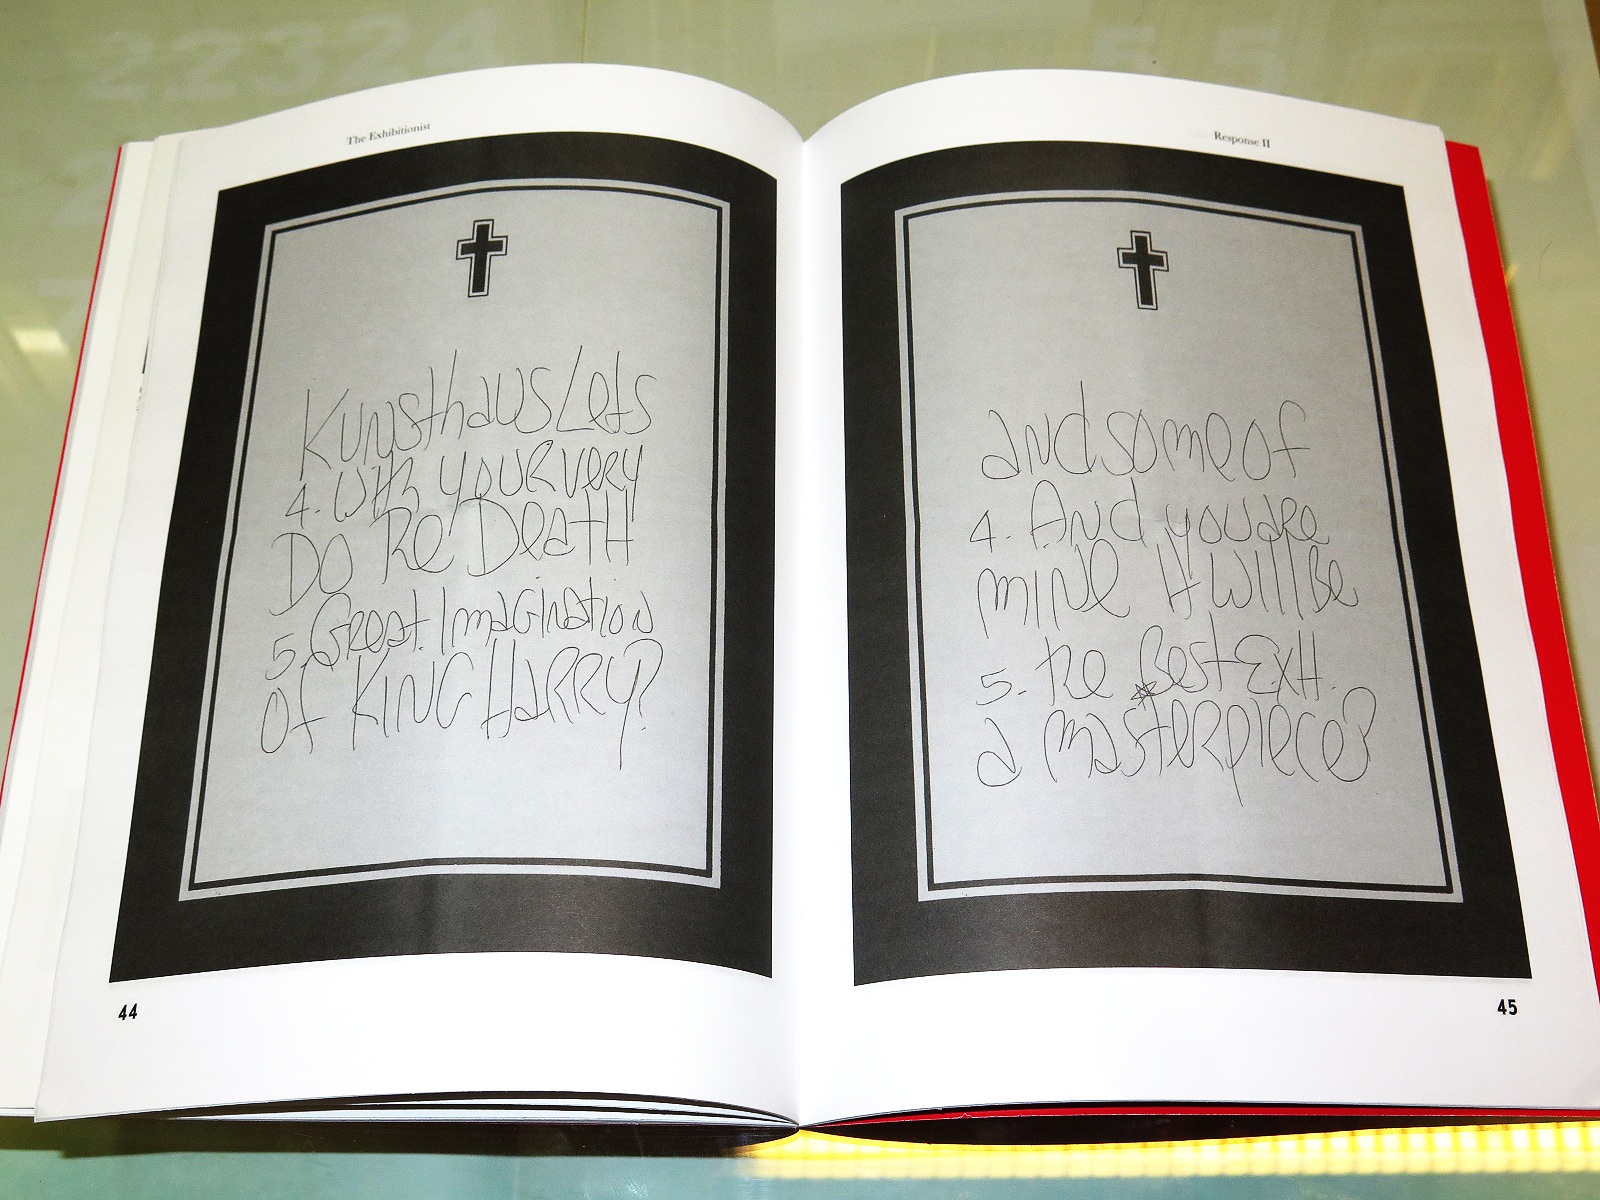 22324
55
The Exhibitionist
Kunsthaus Lets
4. With your very
Do Re Death
5. Great Imagination
of King Harry?
44
Response II
and some of
4. And you are
mine It will Be
5. Re Best Exh.
a masterpiece?
45